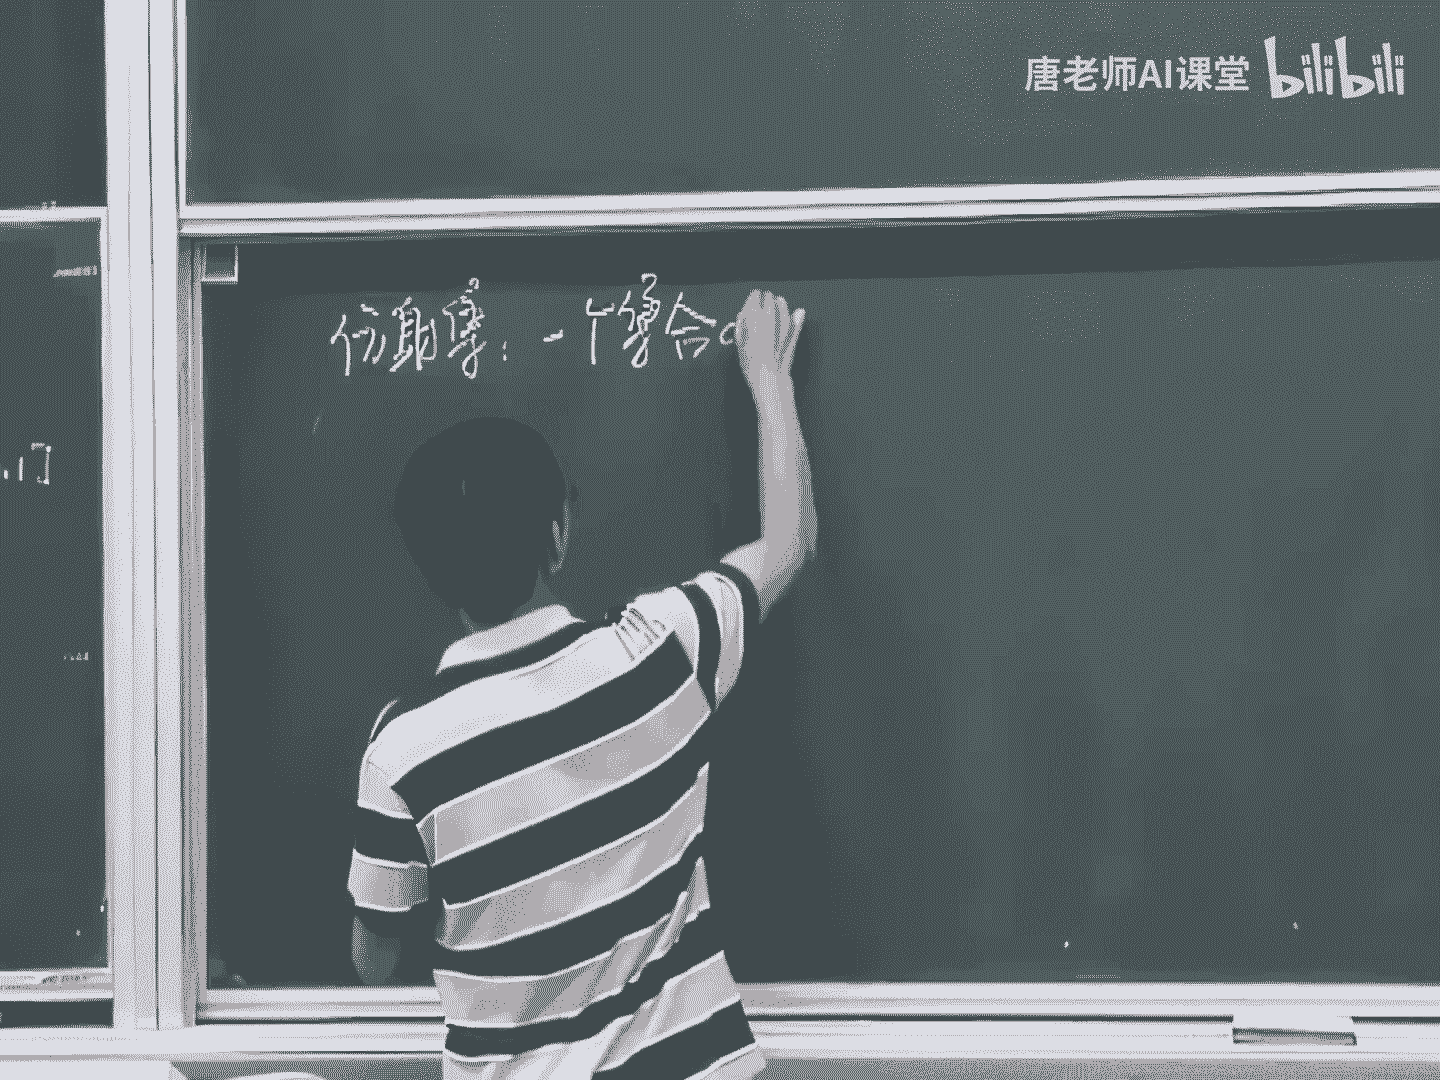 唐老师AI课堂 bilibili
仿射集：一个集合C